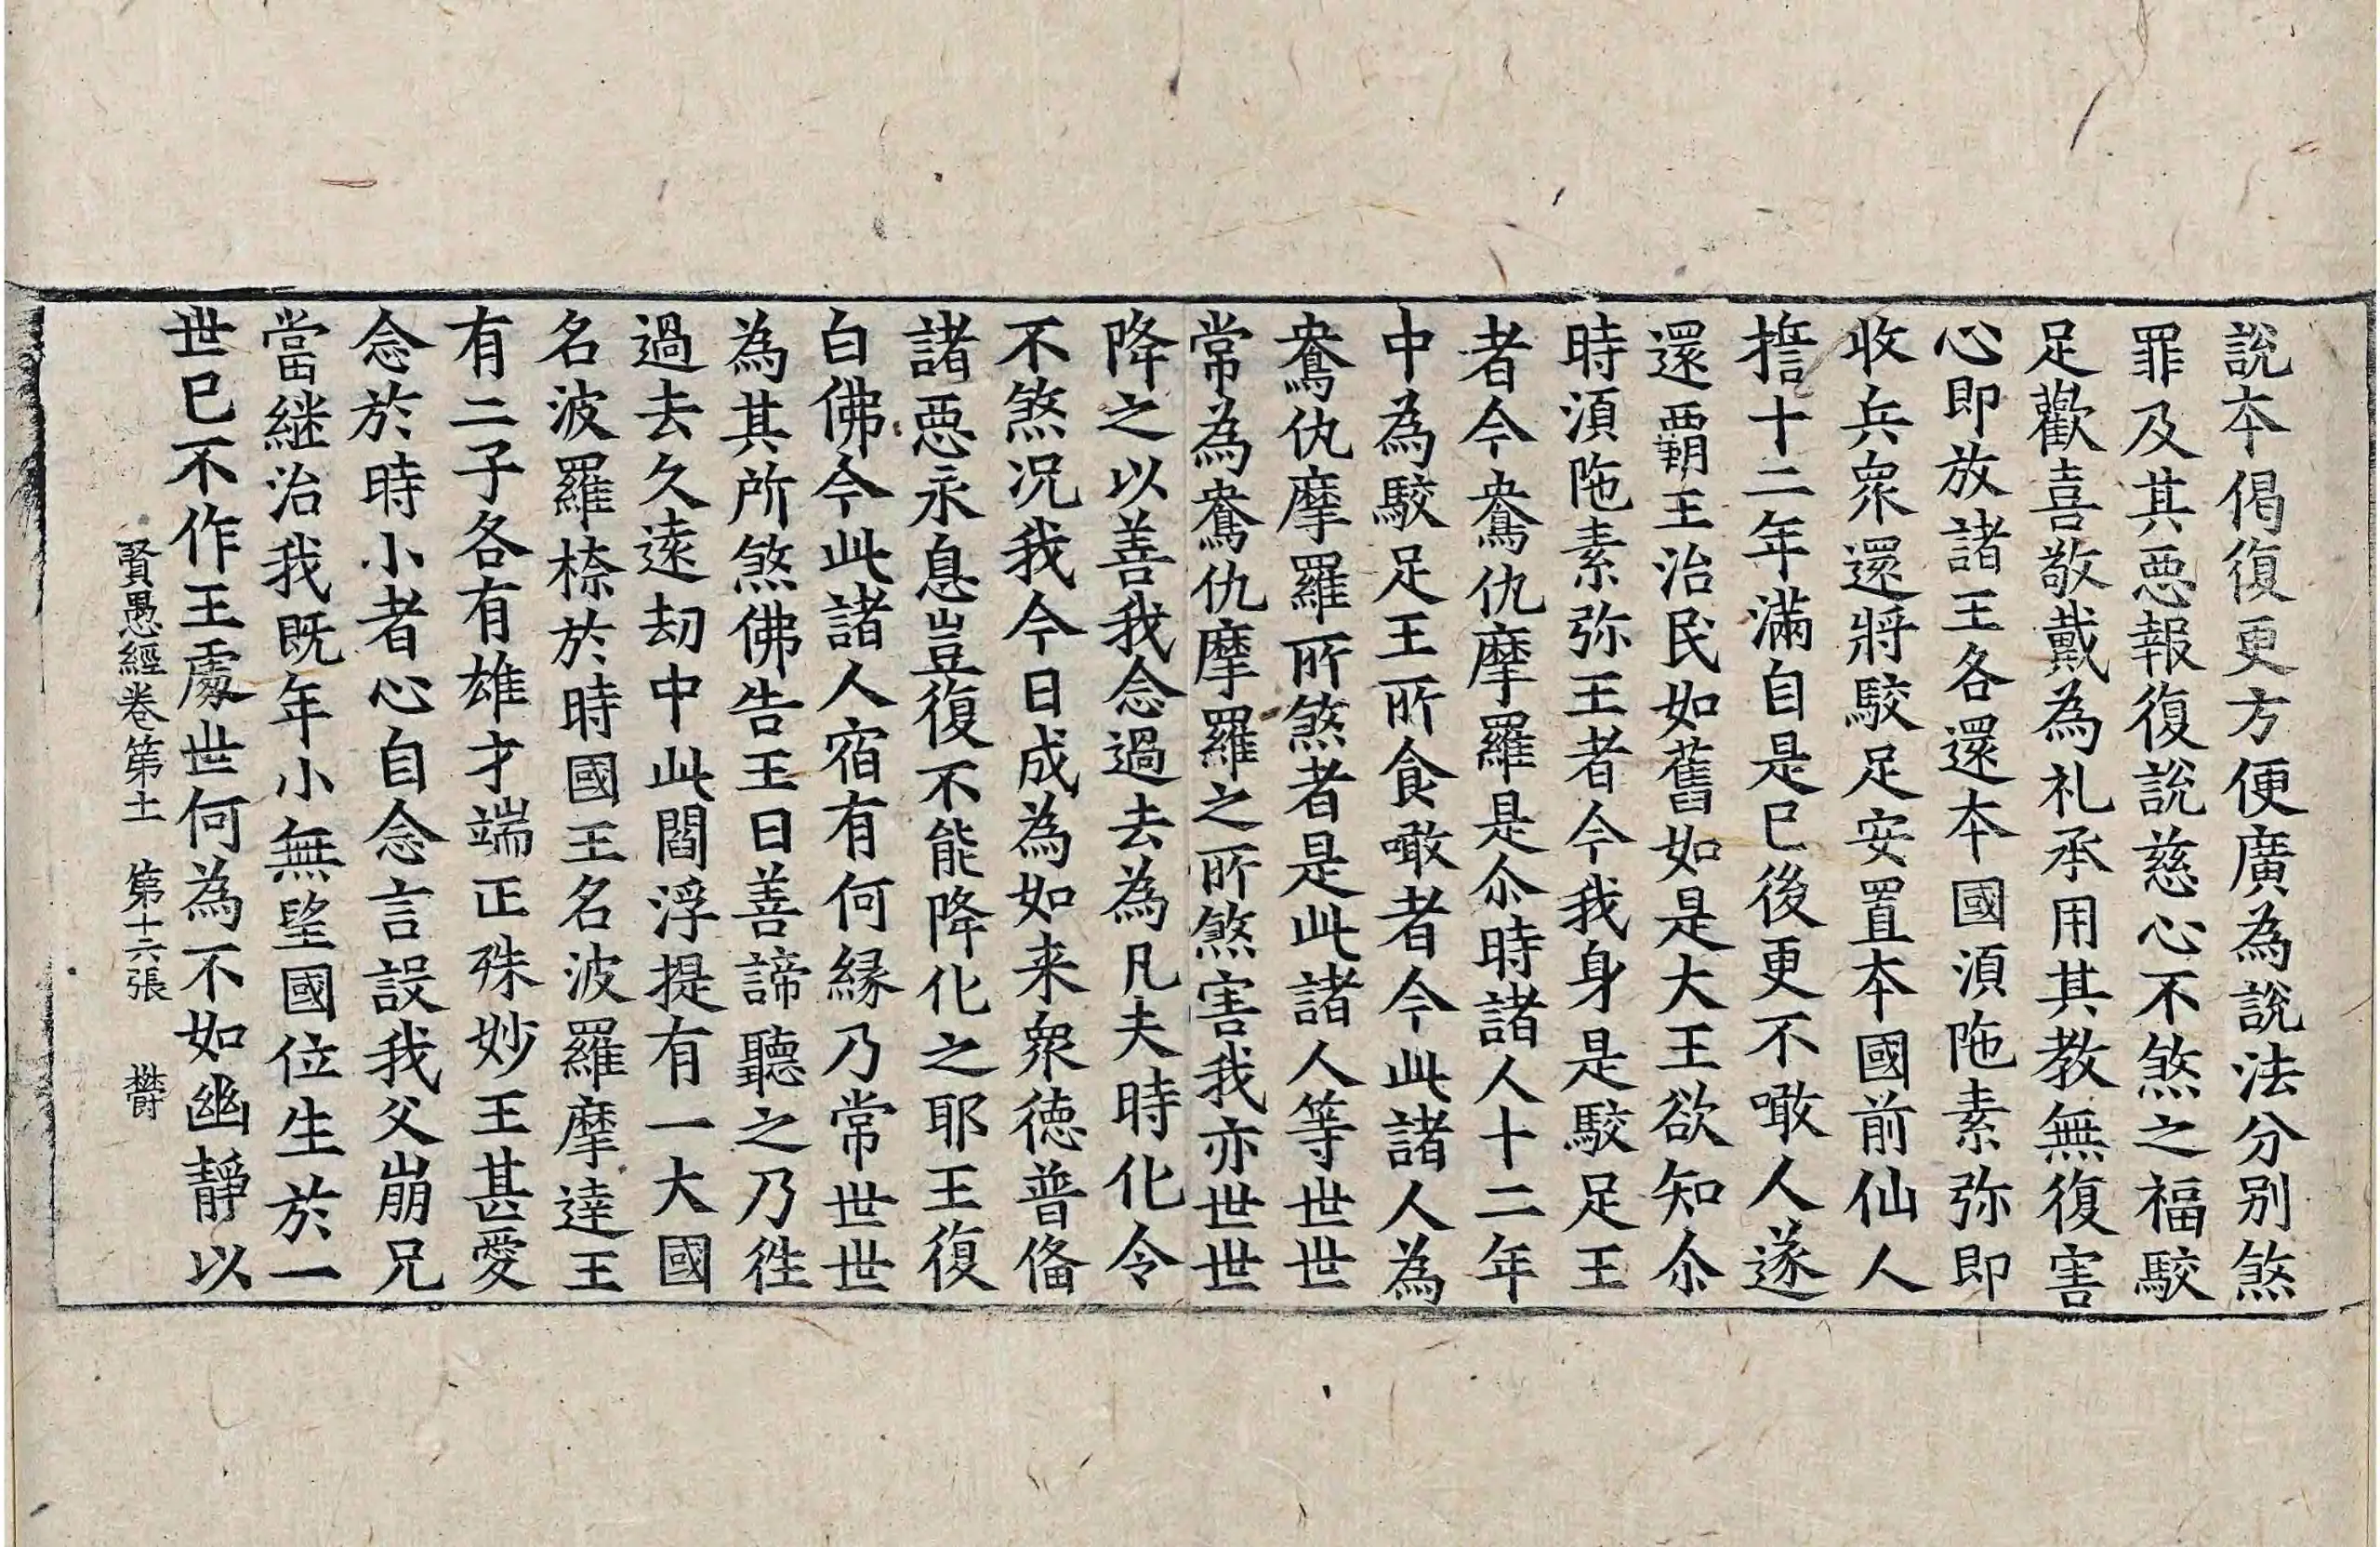 說本偈復更方便廣為說法分別煞
罪及其惡報復說慈心不煞之福駮
足歡喜敬戴為礼承用其教無復害
心即放諸王各還本國湏陁素弥即
收兵衆還將駮足安置本國前仙人
擔十二年滿自是已後更不噉人遂
還覇王治民如舊如是大王欲知尒
時湏陁素弥王者今我身是駮足王
者今鴦仇摩羅是尒時諸人十二年
中為駮足王所食噉者今此諸人為
鴦仇摩羅所煞者是此諸人等世世
常為鴦仇摩羅之所煞害我亦世世
降之以善我念過去為凡夫時化令
不煞况我今日成為如来衆徳普俻
諸惡永息豈復不能降化之耶王復
白佛今此諸人宿有何縁乃常世世
為其所煞佛告王曰善諦聽之乃徃
過去久遠劫中此閻浮提有一大國
名波羅㮈於時國王名波羅摩達王
有二子各有雄才端正殊妙王甚愛
念於時小者心自念言設我父崩兄
當継治我既年小無望國位生於一
世已不作王處世何為不如幽靜以
賢愚經卷第十一 第十六張 欝